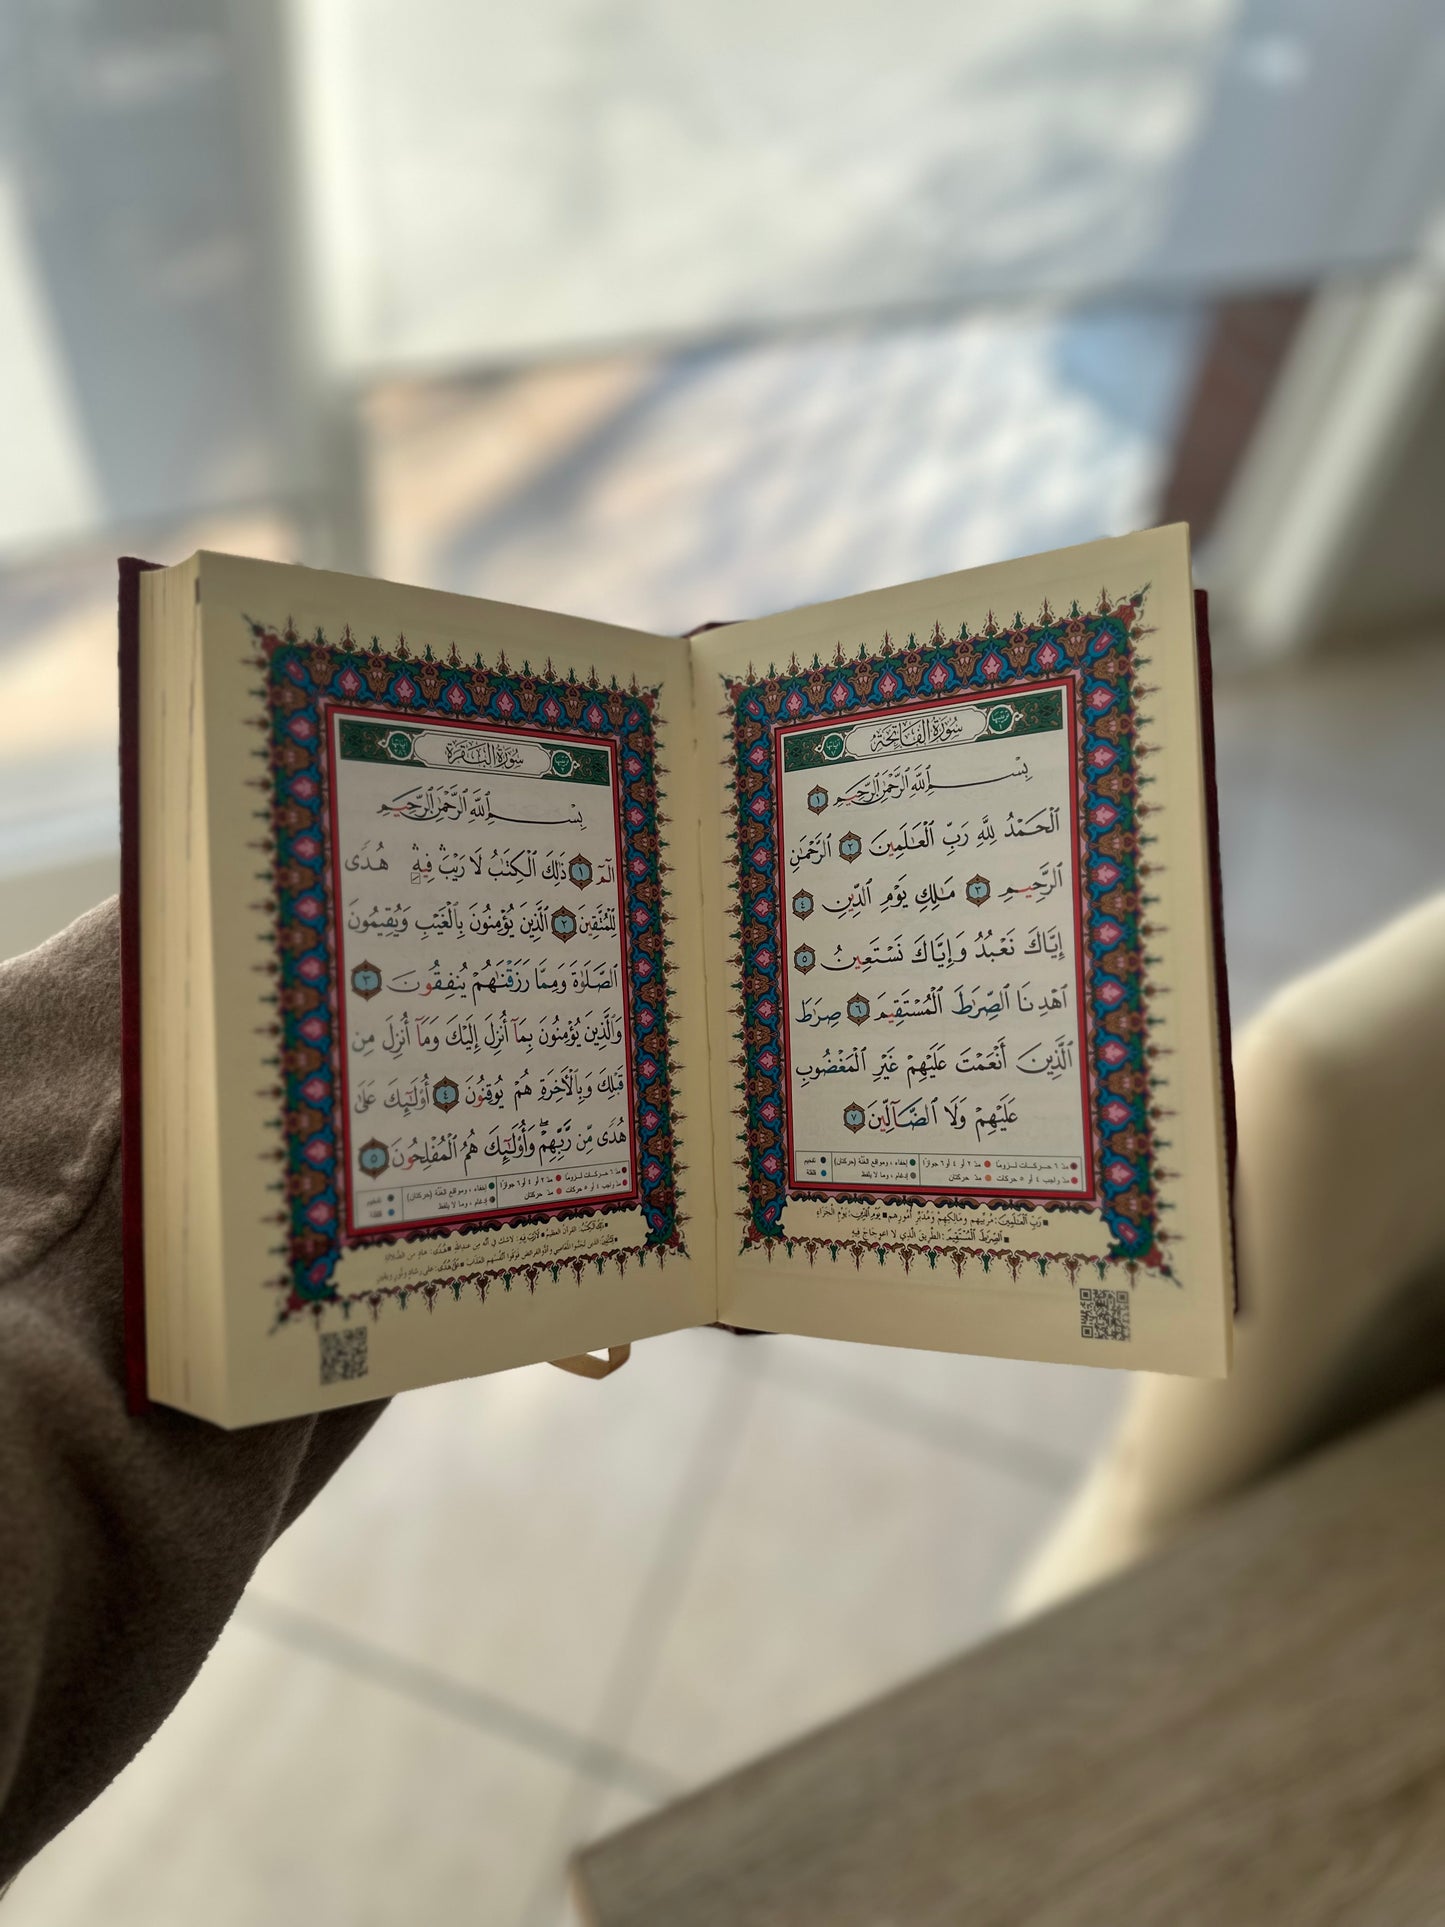 سُورَةُ الفَاتِحَةِ
بِسْمِ ٱللَّهِ ٱلرَّحْمَٰنِ ٱلرَّحِيمِ ١
ٱلْحَمْدُ لِلَّهِ رَبِّ ٱلْعَٰلَمِينَ ٢ ٱلرَّحْمَٰنِ
ٱلرَّحِيمِ ٣ مَٰلِكِ يَوْمِ ٱلدِّينِ ٤
إِيَّاكَ نَعْبُدُ وَإِيَّاكَ نَسْتَعِينُ ٥
ٱهْدِنَا ٱلصِّرَٰطَ ٱلْمُسْتَقِيمَ ٦ صِرَٰطَ
ٱلَّذِينَ أَنْعَمْتَ عَلَيْهِمْ غَيْرِ ٱلْمَغْضُوبِ
عَلَيْهِمْ وَلَا ٱلضَّآلِّينَ ٧
مدّ ٦ حركات لزومًا ● مدّ ٢ أو ٤ أو ٦ جوازًا ● إخفاء، ومواقع الغنّة (حركتان) ● تفخيم
مدّ واجب ٤ أو ٥ حركات ● مدّ حركتان ● إدغام، وما لا يلفظ ● قلقلة
■ رَبِّ الْعَالَمِينَ: مُرَبِّيهِم وَمَالِكِهِم وَمُدَبِّرِ أُمُورِهِم ■ يَوْمِ الدِّينِ: يَوْمِ الْجَزَاءِ
■ الصِّرَاطَ الْمُسْتَقِيمَ: الطَّرِيقَ الَّذِي لَا اعْوِجَاجَ فِيهِ
سُورَةُ البَقَرَةِ
بِسْمِ ٱللَّهِ ٱلرَّحْمَٰنِ ٱلرَّحِيمِ
الٓمٓ ١ ذَٰلِكَ ٱلْكِتَٰبُ لَا رَيْبَ ۛ فِيهِ ۛ هُدًى
لِّلْمُتَّقِينَ ٢ ٱلَّذِينَ يُؤْمِنُونَ بِٱلْغَيْبِ وَيُقِيمُونَ
ٱلصَّلَوٰةَ وَمِمَّا رَزَقْنَٰهُمْ يُنفِقُونَ ٣
وَٱلَّذِينَ يُؤْمِنُونَ بِمَآ أُنزِلَ إِلَيْكَ وَمَآ أُنزِلَ مِن
قَبْلِكَ وَبِٱلْءَاخِرَةِ هُمْ يُوقِنُونَ ٤ أُو۟لَٰٓئِكَ عَلَىٰ
هُدًى مِّن رَّبِّهِمْ ۖ وَأُو۟لَٰٓئِكَ هُمُ ٱلْمُفْلِحُونَ ٥
مدّ ٦ حركات لزومًا ● مدّ ٢ أو ٤ أو ٦ جوازًا ● إخفاء، ومواقع الغنّة (حركتان) ● تفخيم
مدّ واجب ٤ أو ٥ حركات ● مدّ حركتان ● إدغام، وما لا يلفظ ● قلقلة
■ ذَلِكَ الْكِتَابُ: القرآن العظيم ■ لَا رَيْبَ فِيهِ: لا شك في أنه من عند الله ■ هُدًى: هادٍ من الضلالة